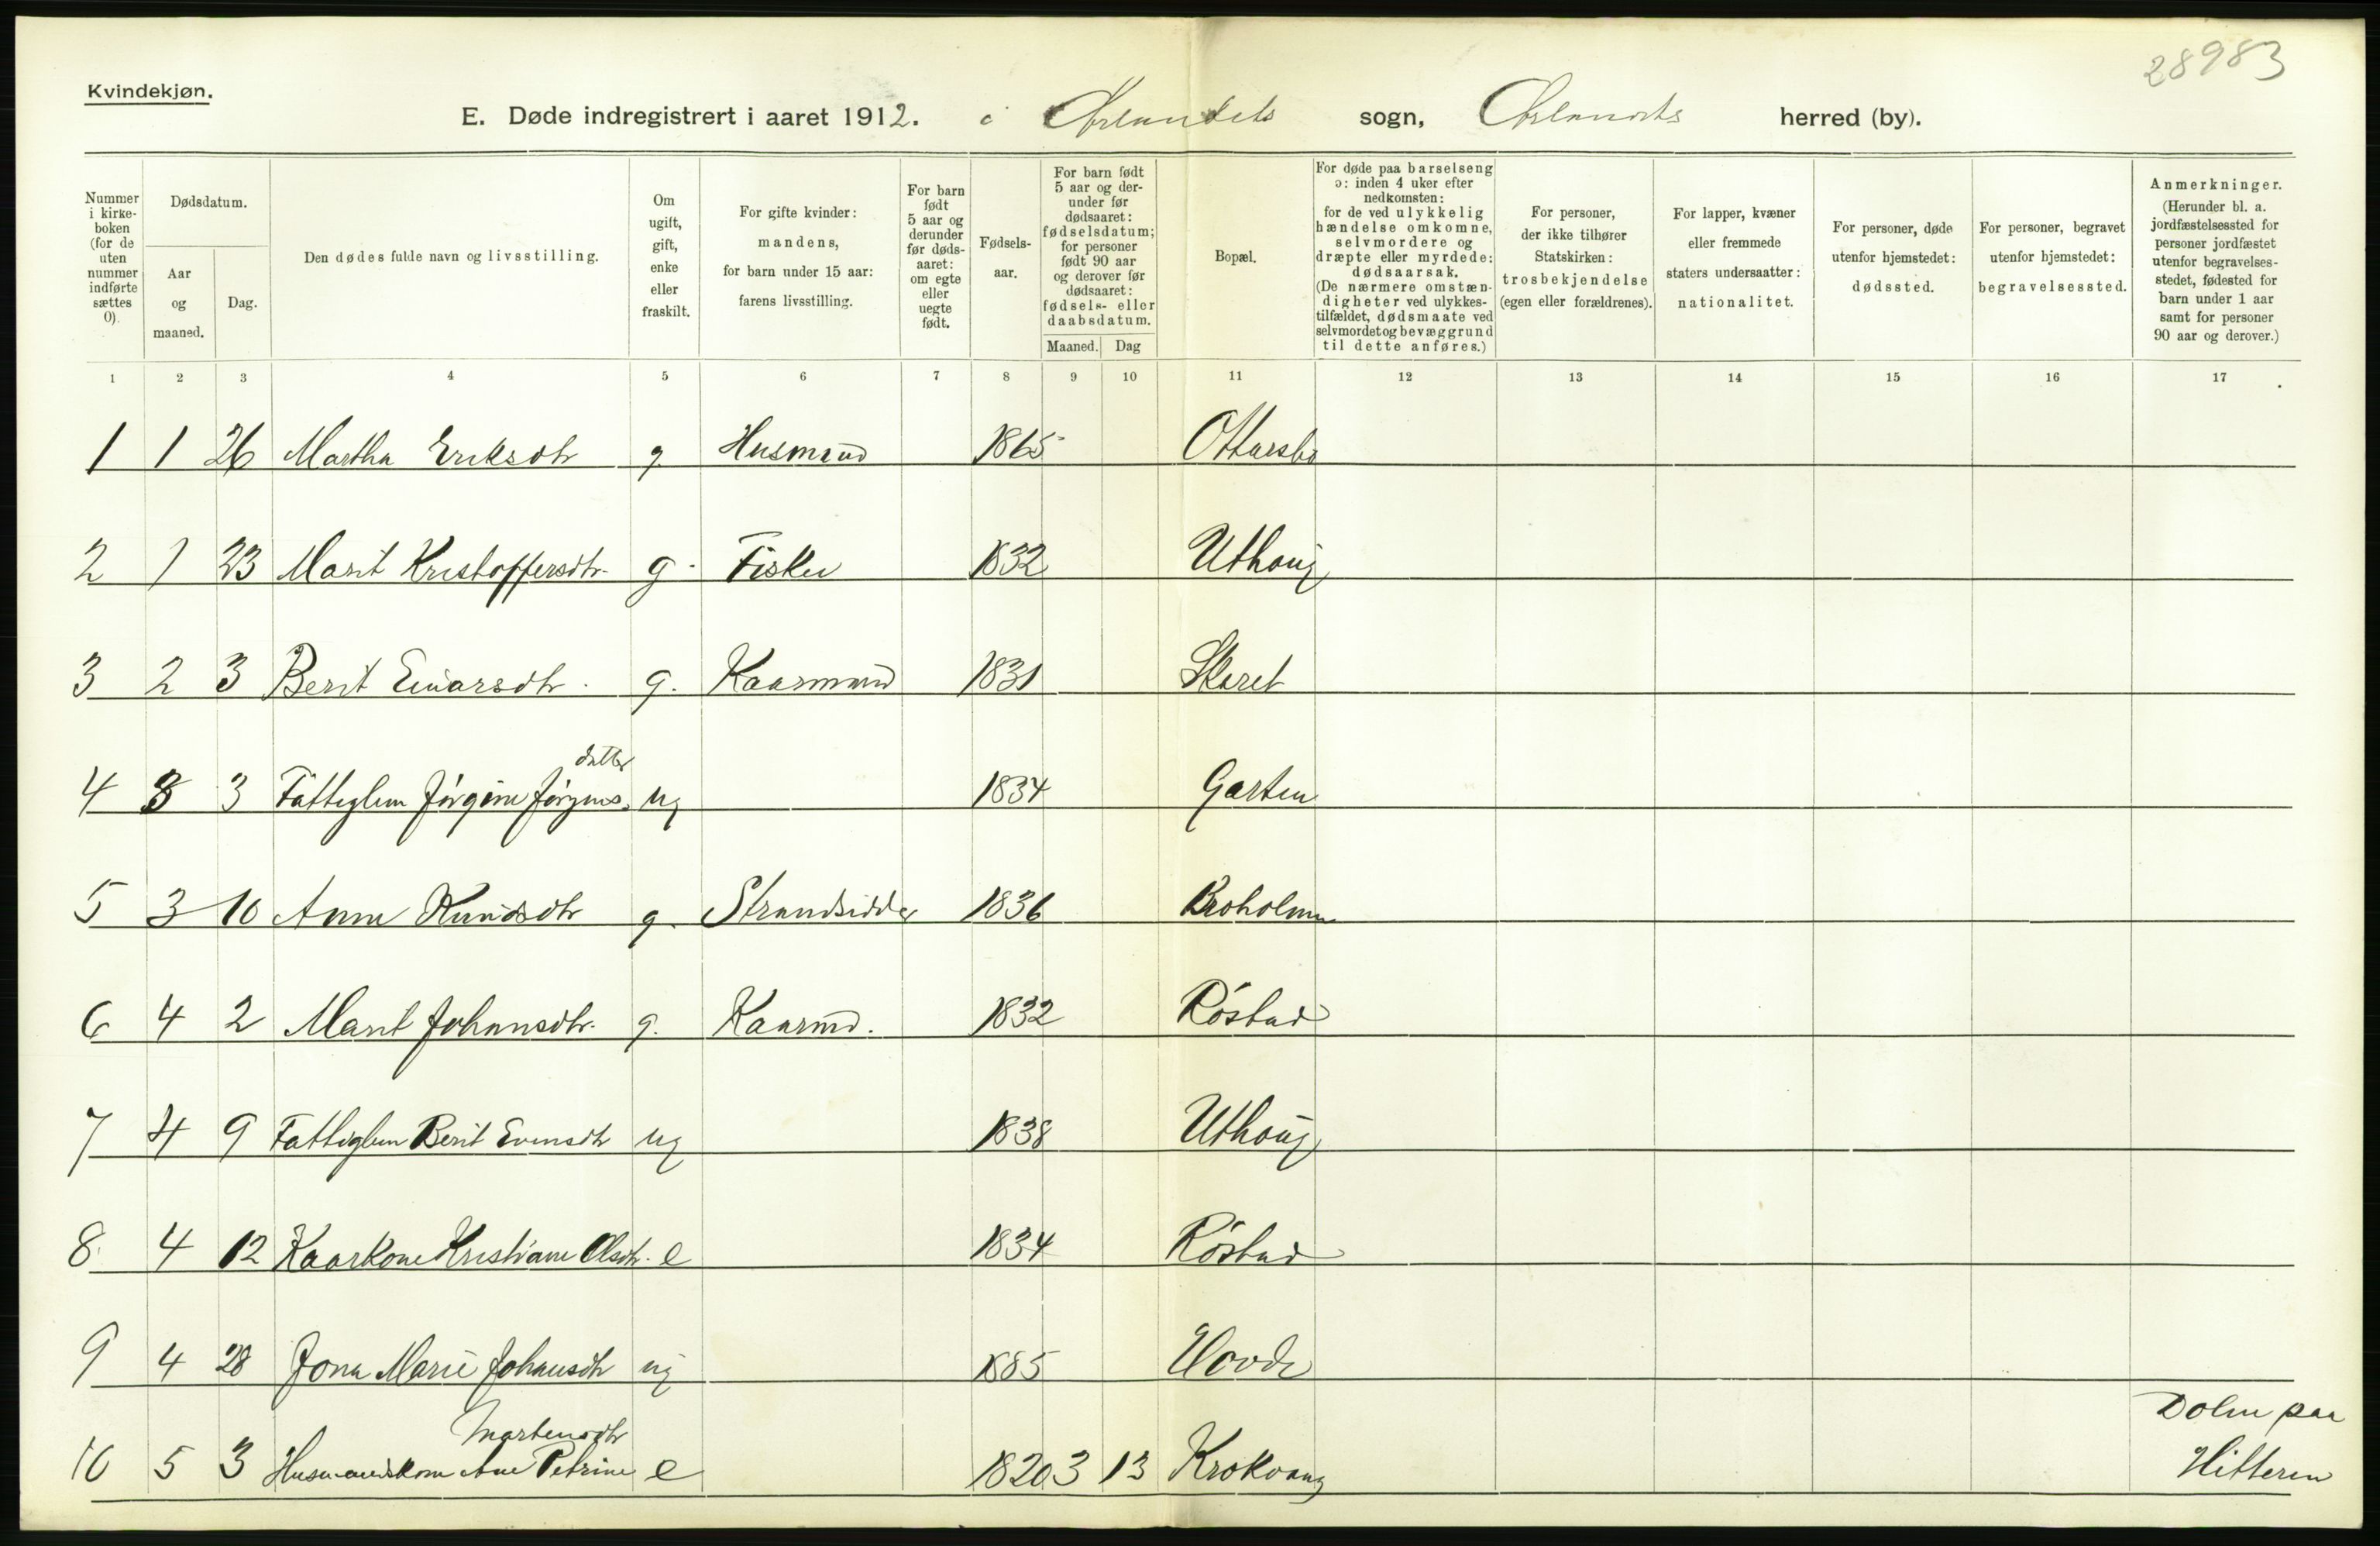 28983
Kvindekjøn.
E. Døde indregistrert i aaret 1912. i Ørlandets sogn, Ørlandets herred (by).
Nummer i kirke-boken (for de uten nummer indførte sættes 0).
Dødsdatum.
Aar og maaned.
Dag.
Den dødes fulde navn og livsstilling.
Om ugift, gift, enke eller fraskilt.
For gifte kvinder: mandens, for barn under 15 aar: farens livsstilling.
For barn født 5 aar og derunder før døds-aaret: om egte eller uegte født.
Fødsels-aar.
For barn født 5 aar og der-under før dødsaaret: fødselsdatum; for personer født 90 aar og derover før dødsaaret: fødsels- eller daabsdatum.
Maaned. Dag
Bopæl.
For døde paa barselseng ɔ: inden 4 uker efter nedkomsten: for de ved ulykkelig hændelse omkomne, selvmordere og dræpte eller myrdede: dødsaarsak. (De nærmere omstæn-digheter ved ulykkes-tilfældet, dødsmaate ved selvmordet og bevæggrund til dette anføres.)
For personer, der ikke tilhører Statskirken: trosbekjendelse (egen eller forældrenes).
For lapper, kvæner eller fremmede staters undersaatter: nationalitet.
For personer, døde utenfor hjemstedet: dødssted.
For personer, begravet utenfor hjemstedet: begravelsessted.
Anmerkninger. (Herunder bl. a. jordfæstelsessted for personer jordfæstet utenfor begravelses-stedet, fødested for barn under 1 aar samt for personer 90 aar og derover.)
1 2 3 4 5 6 7 8 9 10 11 12 13 14 15 16 17
1 1 26 Martha Eriksdtr g. Husmand 1865 Ottersbo
2 1 23 Marit Kristoffersdtr. g. Fisker 1832 Uthaug
3 2 3 Berit Einarsdtr. g. Kaarmand 1831 Skaret
datter
4 3 3 Fattiglem Jørgine Jørgens. ug 1834 Garten
5 3 10 Anne Knudsdtr g. Strandsidder 1836 Broholmen
6 4 2 Marit Johansdtr. g. Kaarmd. 1832 Røstad
7 4 9 Fattiglem Berit Evensdtr ug 1838 Uthaug
8 4 12 Kaarkone Kristiane Olsdtr. e 1834 Røstad
9 4 28 Jona Marie Johansdtr ug 1885 Hovde
Martensdtr Dolm paa
10 5 3 Husmandskone Ane Petrine e 1820 3 13 Krokvaag Hitteren